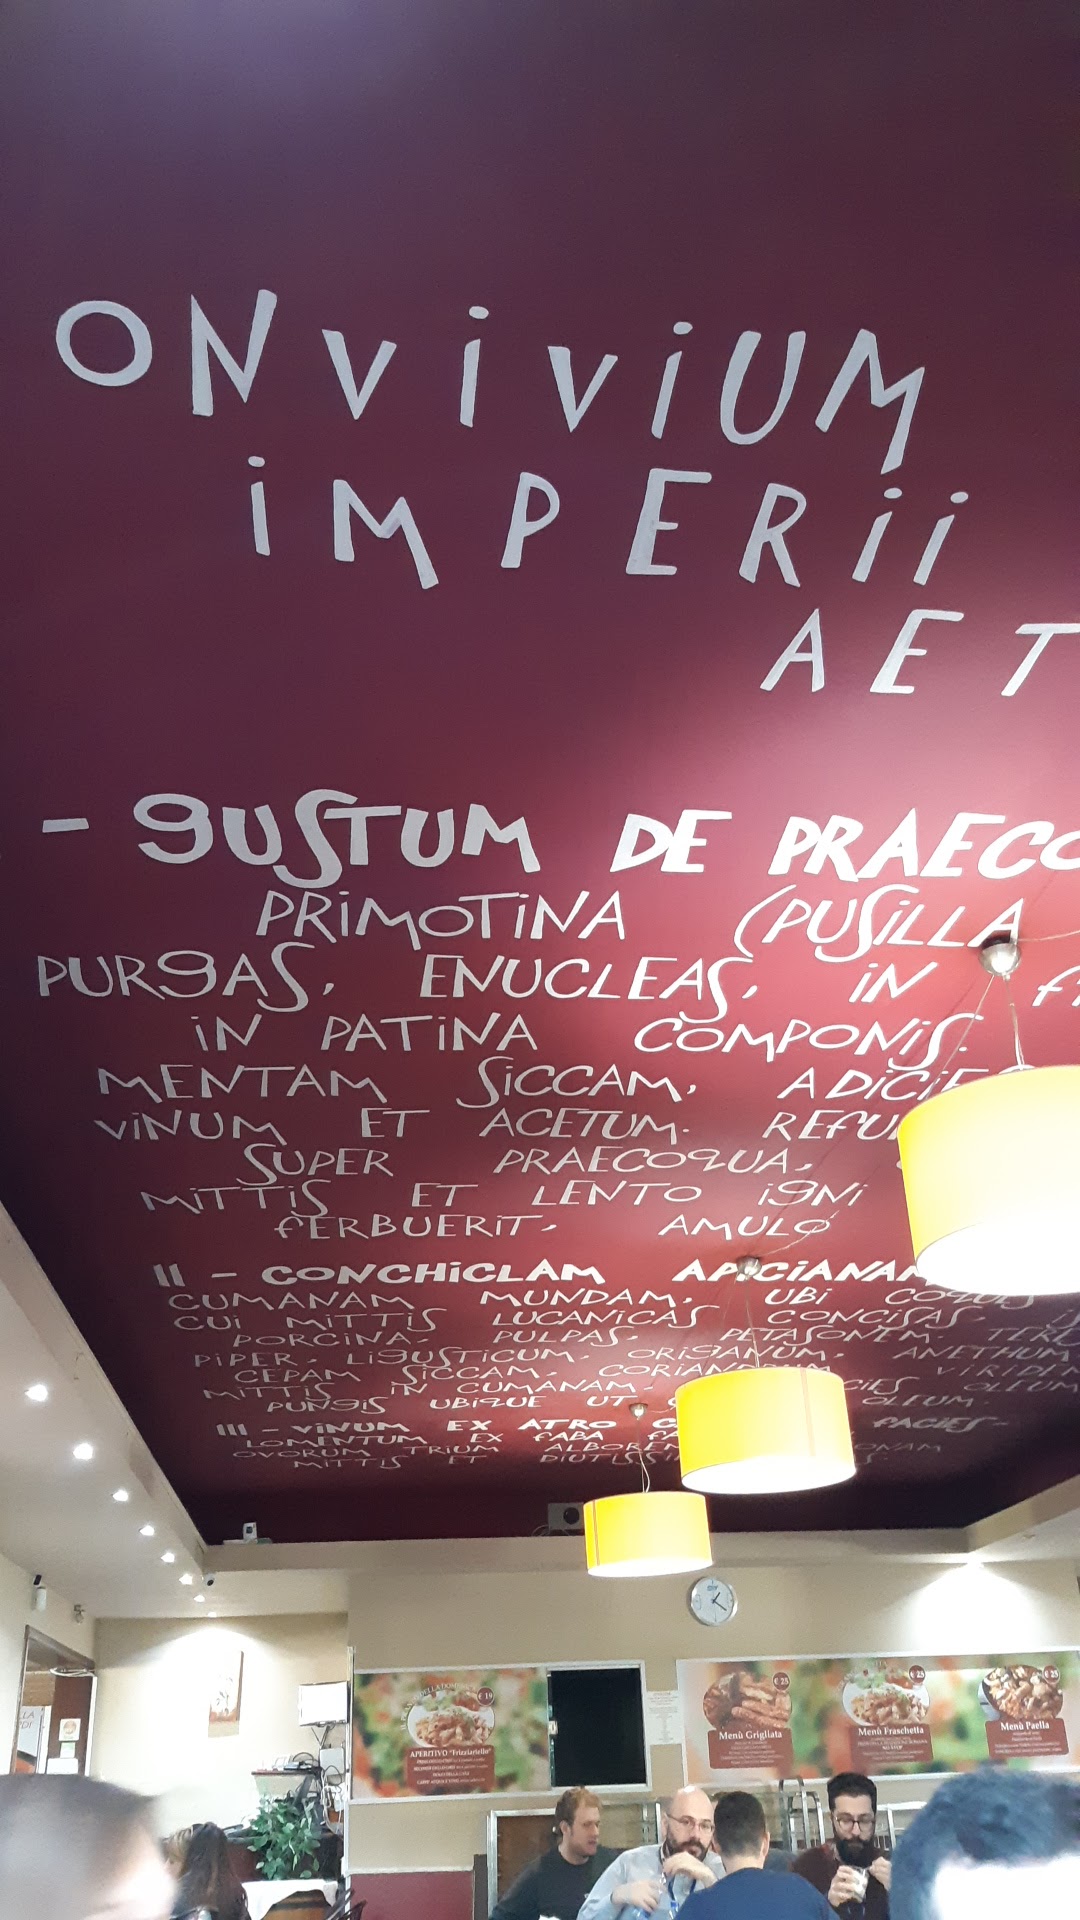 ONViViUM
iMPERii
AET
- GUSTUM DE PRAECO
PRiMOTiNA (PUSiLLA
PURGAS, ENUCLEAS, iN
iN PATiNA COMPONiS.
MENTAM SiCCAM, ADiCiES
ViNUM ET ACETUM. REFU
SUPER PRAECOQUA,
MiTTiS ET LENTO iGNi
FERBUERiT, AMULO
II - CONCHiCLAM APiCiANAM
CUMANAM MUNDAM, UBi COQUES
CUi MiTTiS LUCANiCAS CONCiSAS,
PORCiNA, PULPAS, PETASONEM. TERE
PiPER, LiGUSTiCUM, ORiGANUM, ANETHUM
CEPAM SiCCAM, CORiANDRUM ViRiDE
MiTTiS iN CUMANAM. OLEUM
PUNGiS UBiQUE UT OLEUM.
III - ViNUM EX ATRO FACiES -
LOMENTUM EX FABA
OVORUM TRiUM ALBOREM
MiTTiS ET
€ 19
APERITIVO "Frizziariello"
€ 25
Menù Grigliata
€ 25
Menù Fraschetta
€ 25
Menù Paella